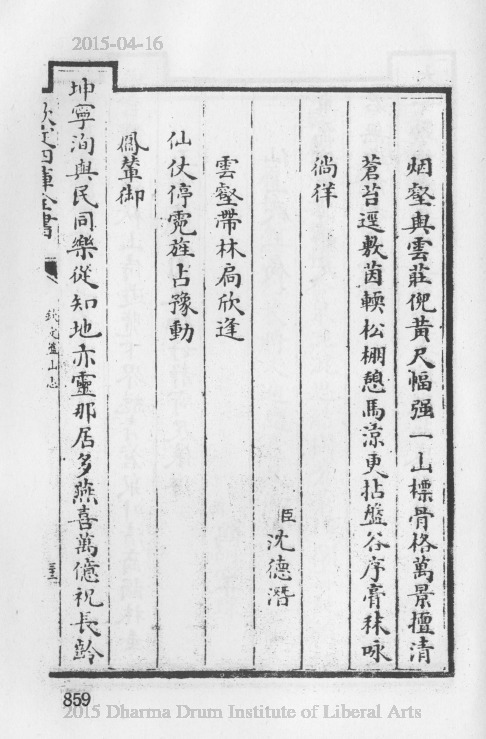 2015-04-16
烟壑與雲莊倪黃尺幅强一山標骨格萬景擅清
蒼苔逕敷茵輭松棚憩馬涼更拈盤谷序膏秣咏
徜徉
臣沈德潛
雲壑帶林扃欣逢
仙仗停霓旌占豫動
鳳輦御
坤寧洵與民同樂從知地亦靈那居多燕喜萬億祝長齡
欽定四庫全書
欽定盤山志
859
2015 Dharma Drum Institute of Liberal Arts